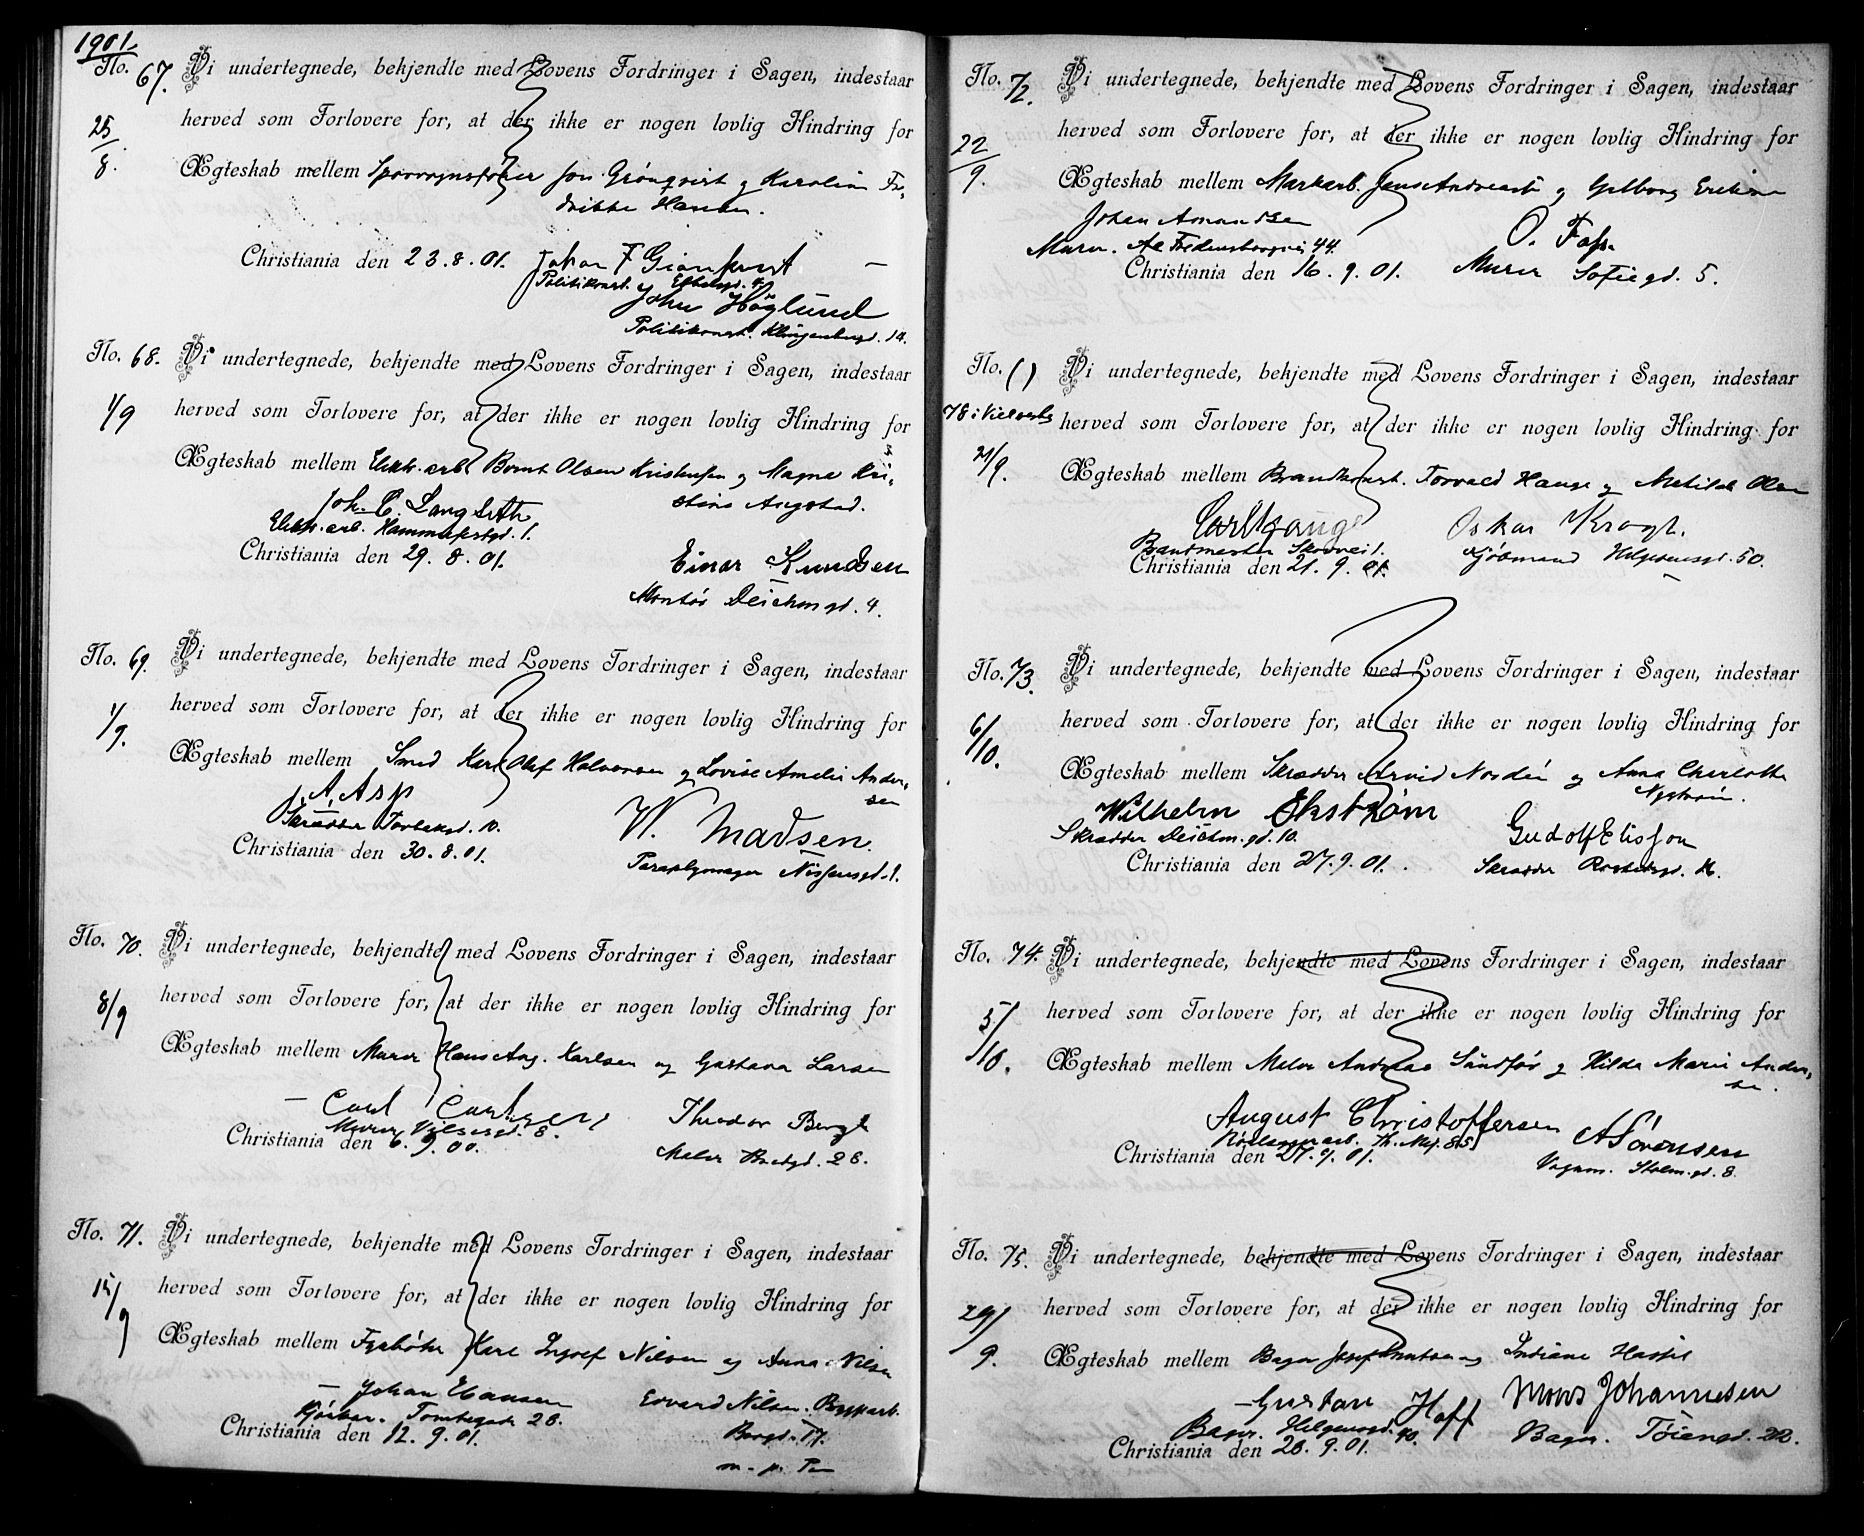 1901.
No. 67. Vi undertegnede, bekjendte med Lovens Fordringer i Sagen, indestaar
25/8. herved som Forlovere for, at der ikke er nogen lovlig Hindring for
Ægteskab mellem Sporvognsfører Jon Grönqvist og Karoline Fre-
drikke Hansen.
Christiania den 23.8.01. Johan F Grönkvist
Politikonst.
John Höglund
Politikonst. Klingenberggd. 14.
No. 68. Vi undertegnede, bekjendte med Lovens Fordringer i Sagen, indestaar
1/9 herved som Forlovere for, at der ikke er nogen lovlig Hindring for
Ægteskab mellem Elektr. arb. Bernt Olsen Kristensen og Magna Kri-
stine Angstad.
Joh. C. Langseth
Elektr. arb. Hammerfestgd. 1.
Christiania den 29.8.01. Einar Knudsen
Montör Deichmgd. 4.
No. 69. Vi undertegnede, bekjendte med Lovens Fordringer i Sagen, indestaar
1/9. herved som Forlovere for, at der ikke er nogen lovlig Hindring for
Ægteskab mellem Smed Karl Olaf Halvorsen og Lovise Amelie Ander-
sen
A. Asp W. Madsen.
Skrædder Torbeksgd. 10.
Christiania den 30.8.01. Paraplymager Nissensgd. 1.
No. 70. Vi undertegnede, bekjendte med Lovens Fordringer i Sagen, indestaar
8/9 herved som Forlovere for, at der ikke er nogen lovlig Hindring for
Ægteskab mellem Murer Hans Aug. Karlsen og Gustava Larsen
Carl Carlsen Theodor Bergh
Murer 8.
Christiania den 6.9.00. Maler 28.
No. 71. Vi undertegnede, bekjendte med Lovens Fordringer i Sagen, indestaar
15/9 herved som Forlovere for, at der ikke er nogen lovlig Hindring for
Ægteskab mellem Fyrbøter Karl Ingolf Nilsen og Anna Nilsen
Johan Hansen Edvard Nilsen. Bryggarb.
Kjörkar. Tomtegade 28.
Christiania den 12.9.01. Borgd. 17.
m. p. P.
No. 72. Vi undertegnede, bekjendte med Lovens Fordringer i Sagen, indestaar
22/9. herved som Forlovere for, at der ikke er nogen lovlig Hindring for
Ægteskab mellem Markarb. Jens Andreasen og Gylborg Eriksen
Johan Amundsen O. Foss.
Murer. Ae Fredensborgvei 44.
Christiania den 16.9.01. Murer Sofiegd. 5.
No. ( ) Vi undertegnede, bekjendte med Lovens Fordringer i Sagen, indestaar
78 i Vielsesb. herved som Forlovere for, at der ikke er nogen lovlig Hindring for
21/9. Ægteskab mellem Brandkonst. Torvald Hauge og Matilde Olsen
Carl Hauge Oskar Kragh.
Brandmester Skovvei 1.
Christiania den 21.9.01. Kjöbmand Helgesensgd. 50.
No. 73. Vi undertegnede, bekjendte med Lovens Fordringer i Sagen, indestaar
6/10. herved som Forlovere for, at der ikke er nogen lovlig Hindring for
Ægteskab mellem Skrædder Arvid Nordén og Anna Charlotta
Nyström.
Wilhelm Ekström Gudolf Elisson
Skrædder Deichm.gd. 10.
Christiania den 27.9.01. Skrædder 16.
No. 74. Vi undertegnede, bekjendte med Lovens Fordringer i Sagen, indestaar
5/10. herved som Forlovere for, at der ikke er nogen lovlig Hindring for
Ægteskab mellem Maler Andreas Sundför og Hilda Marie Ander-
sen.
August Christoffersen A Sörensen
Rörlæggerarb. Th. Mej. 85
Christiania den 27.9.01. Vognm. Holm.gd. 8.
No. 75. Vi undertegnede, bekjendte med Lovens Fordringer i Sagen, indestaar
29/9. herved som Forlovere for, at der ikke er nogen lovlig Hindring for
Ægteskab mellem Bager Josef Knutsen og Indiane Hassel
Gustav Hoff Mons Johannesen
Bager. Helgesensgd. 40.
Christiania den 28.9.01. Bager. Töiengd. 22.